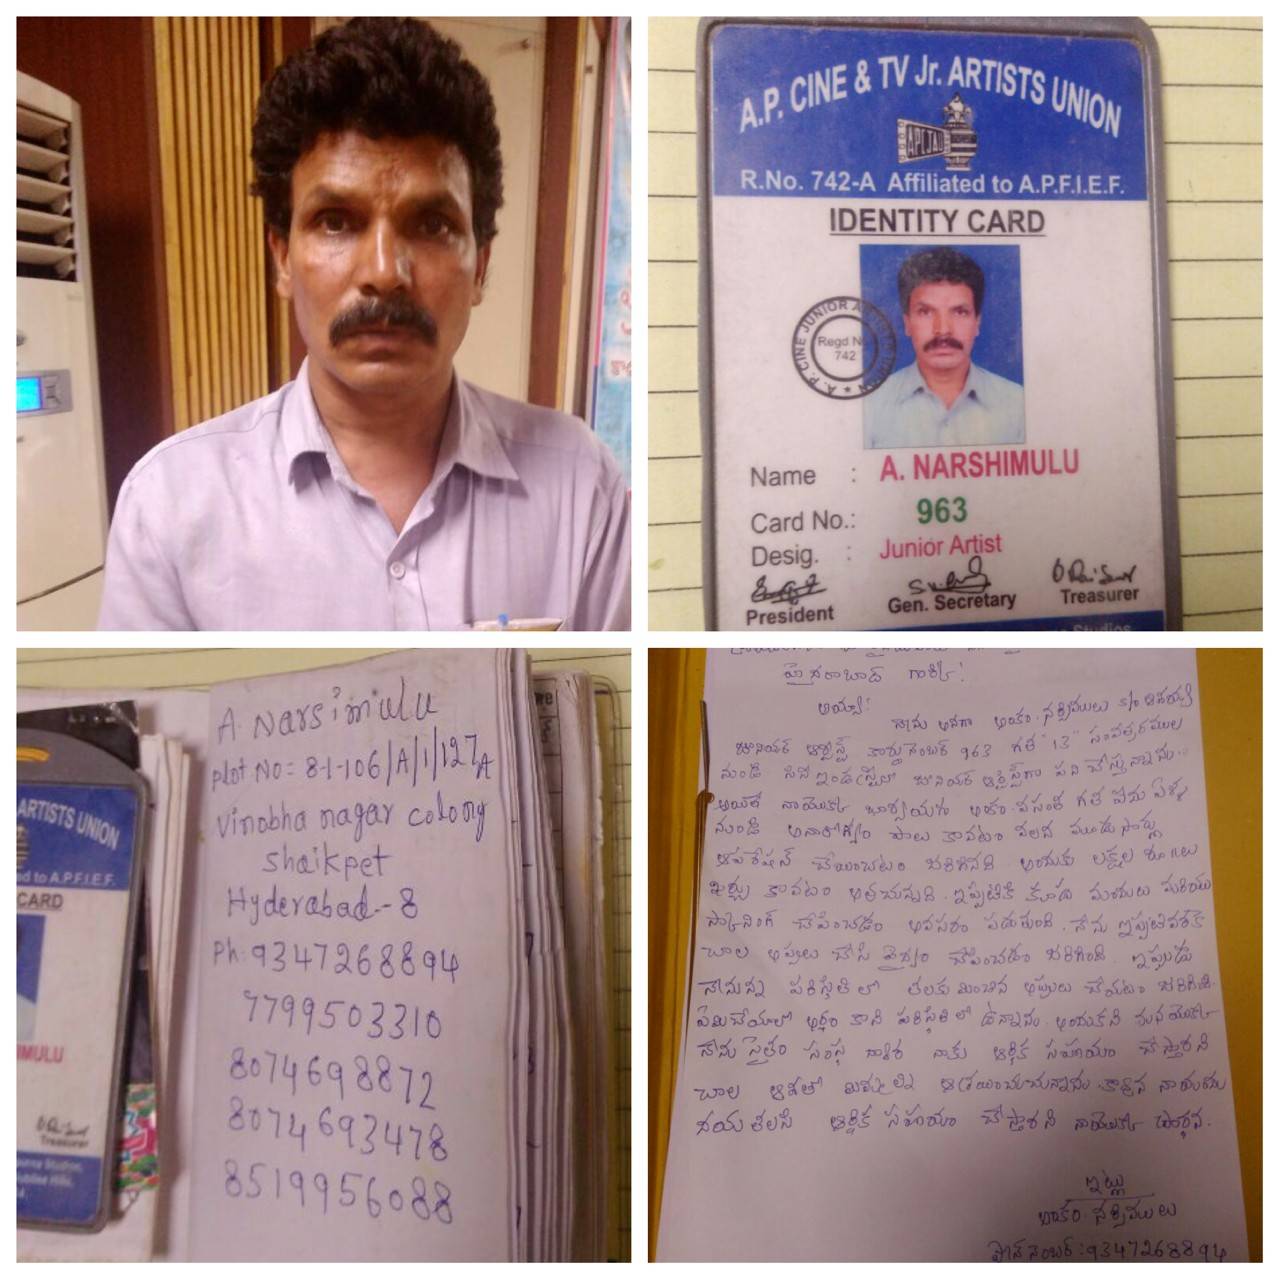 A.P. CINE & TV Jr. ARTISTS UNION
APCJAU
R.No. 742-A Affiliated to A.P.F.I.E.F.
IDENTITY CARD
A.P. CINE JUNIOR
Regd No.
742
Name : A. NARSHIMULU
Card No.: 963
Desig. : Junior Artist
President
Gen. Secretary
Treasurer
Studios,
ARTISTS UNION
ed to A.P.F.I.E.F.
CARD
MULU
Treasurer
A. Narsimulu
plot No = 8-1-106/A/1/127/A
Vinobha nagar colony
Shaikpet
Hyderabad - 8
Ph: 9347268894
7799503310
8074698872
8074693478
8519956088
హైదరాబాద్ గారికి!
అయ్యా!
నేను అనగా అంకం. నర్సిములు S/o
జూనియర్ ఆర్టిస్ట్ కార్డు నెంబర్ 963 గత "13" సంవత్సరముల
నుండి సినీ ఇండస్ట్రీలో జూనియర్ ఆర్టిస్ట్‌గా పని చేస్తున్నాను..
అయితే నాయొక్క భార్యయగు అంకం. వసంత గత
నుండి అనారోగ్యం పాలు కావటం వలన మూడు సార్లు
ఆపరేషన్ చేయించటం జరిగినది. అందుకు లక్షల రూ॥లు
ఖర్చు కావటం జరిగినది. ఇప్పటికి కూడా మందులు మరియు
స్కానింగ్ చేపించడం అవసరం పడుతుంది. నేను ఇప్పటివరకు
చాల అప్పులు చేసి వైద్యం చేపించడం జరిగింది. ఇప్పుడు
నేనున్న పరిస్థితిలో తలకు మించిన అప్పులు చేయటం జరిగింది.
ఏమిచేయాలో అర్థం కాని పరిస్థితిలో ఉన్నాను. అందుకని
సంస్థ ద్వారా నాకు ఆర్థిక సహాయం చేస్తారని
చాల ఆశతో మిమ్మల్ని కావున నాయందు
దయ తలచి ఆర్థిక సహాయం చేస్తారని నాయొక్క ప్రార్థన.
ఇట్లు
అంకం. నర్సిములు
ఫోన్ నెంబర్: 9347268894